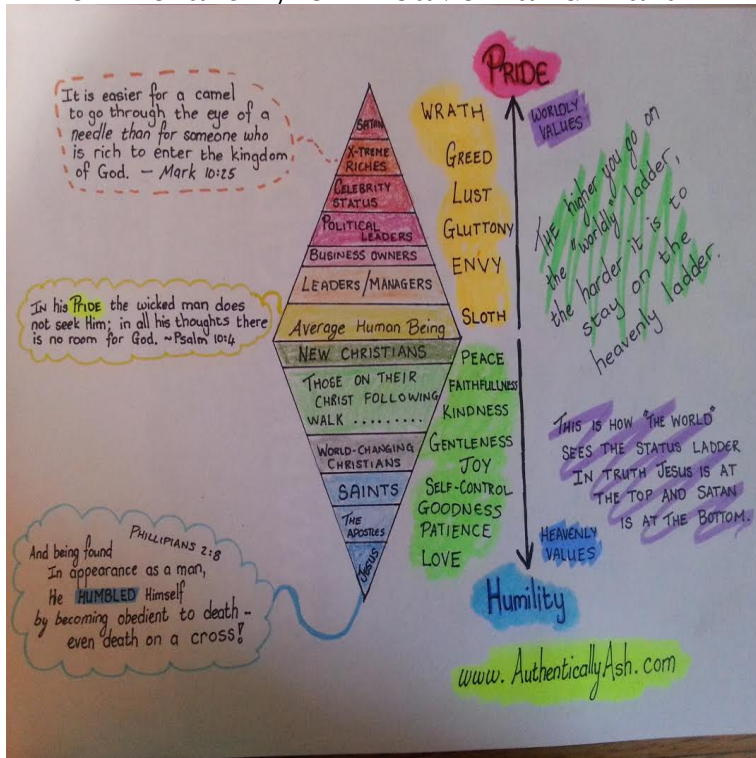 It is easier for a camel
to go through the eye of a
needle than for someone who
is rich to enter the kingdom
of God. – Mark 10:25
IN his PRIDE the wicked man does
not seek Him; in all his thoughts there
is no room for God. ~Psalm 10:4
PHILLIPIANS 2:8
And being found
In appearance as a man,
He HUMBLED Himself
by becoming obedient to death –
even death on a cross!
SATAN
X-TREME
RICHES
CELEBRITY
STATUS
POLITICAL
LEADERS
BUSINESS OWNERS
LEADERS/MANAGERS
Average Human Being
NEW CHRISTIANS
THOSE ON THEIR
CHRIST FOLLOWING
WALK .........
WORLD-CHANGING
CHRISTIANS
SAINTS
THE
APOSTLES
JESUS
WRATH
GREED
LUST
GLUTTONY
ENVY
SLOTH
PEACE
FAITHFULLNESS
KINDNESS
GENTLENESS
JOY
SELF-CONTROL
GOODNESS
PATIENCE
LOVE
PRIDE
WORLDLY
VALUES
HEAVENLY
VALUES
Humility
THE higher you go on
the "worldly" ladder,
the harder it is to
stay on the
heavenly ladder.
THIS IS HOW "THE WORLD"
SEES THE STATUS LADDER
IN TRUTH JESUS IS AT
THE TOP AND SATAN
IS AT THE BOTTOM.
www.AuthenticallyAsh.com